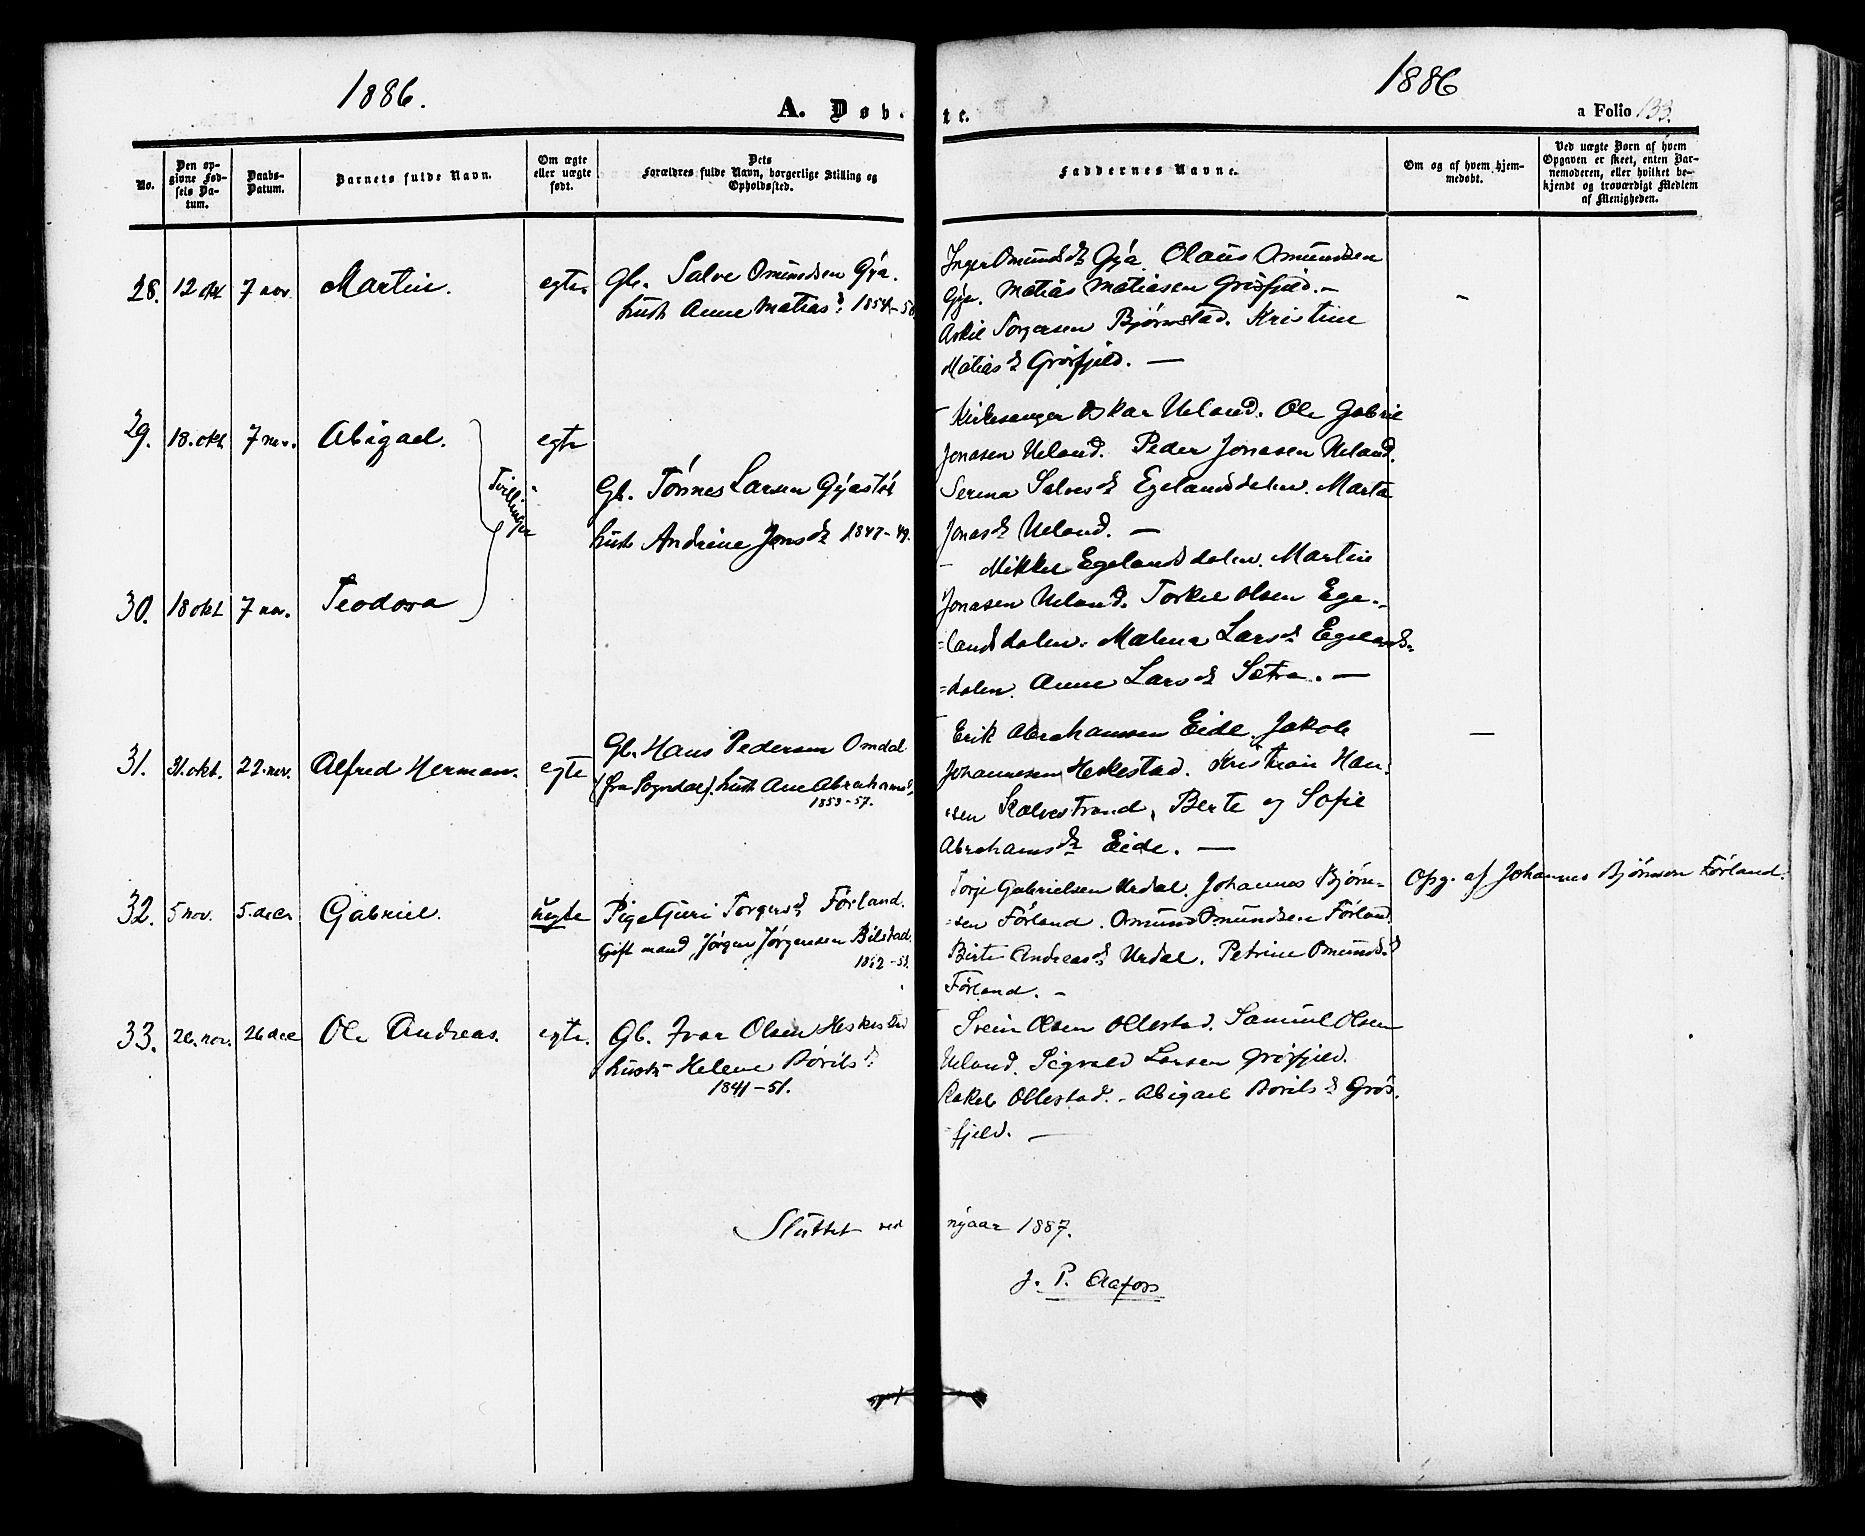 1886.
1886
A. Døb-
te.
a Folio 133.
No.
Den op-
givne Fød-
sels Da-
tum.
Daabs-
Datum.
Barnets fulde Navn.
Om ægte
eller uægte
født.
Dets
Forældres fulde Navn, borgerlige Stilling og
Opholdssted.
Faddernes Navne.
Om og af hvem hjem-
medøbt.
Ved uægte Børn af hvem
Opgaven er skeet, enten Bar-
nemoderen, eller hvilket be-
kjendt og troværdigt Medlem
af Menigheden.
28. 12 okt 7 nov. Martin. egte. Gb. Salve Omundsen Gya.
hustr. Anne Matiasd. 1854-58
Inger Omundsd. Gya. Olaus Omundsen
Gya. Matias Matiasen Grøsfjeld. -
Askil Torgersen Bjørnstad. Kristine
Matiasd. Grøsfjeld. -
-
29. 18. okt 7 nov. Abigael. egte
Tvillinger
Gb. Tønnes Larsen Gyastøl
hustr. Andrine Jonsd. 1847-49.
- Kirkesanger Oskar Ueland. Ole Gabriel
Jonasen Ueland. Peder Jonasen Ueland.
Serina Salvesd. Egelandsdalen. Marta
Jonasd. Ueland. -
30. 18 okt 7 nov. Teodora
- Mikkel Egelandsdalen. Martin
Jonasen Ueland. Torkel Olsen Ege-
=landsdalen. Malena Larsd. Egelands-
=dalen. Anne Larsd. Sætra. -
31. 31. okt. 22. nov. Alfred Herman. egte Gb. Hans Pedersen Omdal
(fra Sogndal). hustr. Ane Abrahamsd.
1853-57.
- Erik Abrahamsen Eide. Jakob
Johannesen Heskestad. Kristian Han-
=sen Kalvestrand, Berte og Sofie
Abrahamsd. Eide. -
-
32. 5 nov. 5. decr Gabriel. uegte Pige Guri Torgersd. Førland.
Gift mand Jørgen Jørgensen Bilstad.
Torje Gabrielsen Urdal. Johannes Bjørn-
=sen Førland. Omund Omundsen Førland.
Birte Andreasd. Urdal. Petrine Omundsd.
Førland. -
Opg. af Johannes Bjørnson Førland.
33. 26. nov. 26 dec Ole Andreas. egte. Gb. Ivar Olsen Heskestad
hustr. Helene Børilsd.
1841-51.
Svein Olsen Ollestad. Samuel Olsen
Ueland. Sigvald Larsen Grøsfjeld.
Rakel Ollestad. - Abigael Børilsd. Grøs-
-fjeld. -
Sluttet ved nyaar 1887.
J. P. Olafors